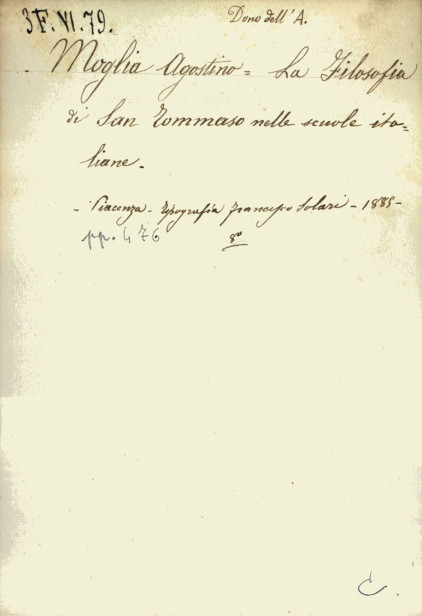 3F.VI.79.
Dono dell'A.
Moglia Agostino = La Filosofia
di San Tommaso nelle scuole ita=
liane.
- Piacenza - Tipografia Francesco Solari - 1885 -
pp. 476
8º
C.